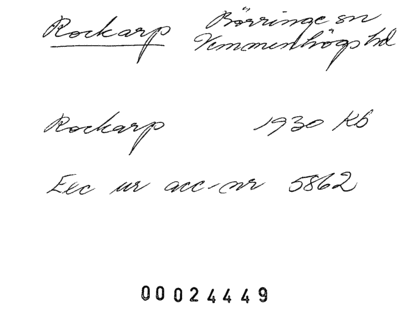 Rockarp Börringe sn
Vemmenhögs hd
Rockarp 1930 Kb
Exc ur acc-nr 5862
00024449